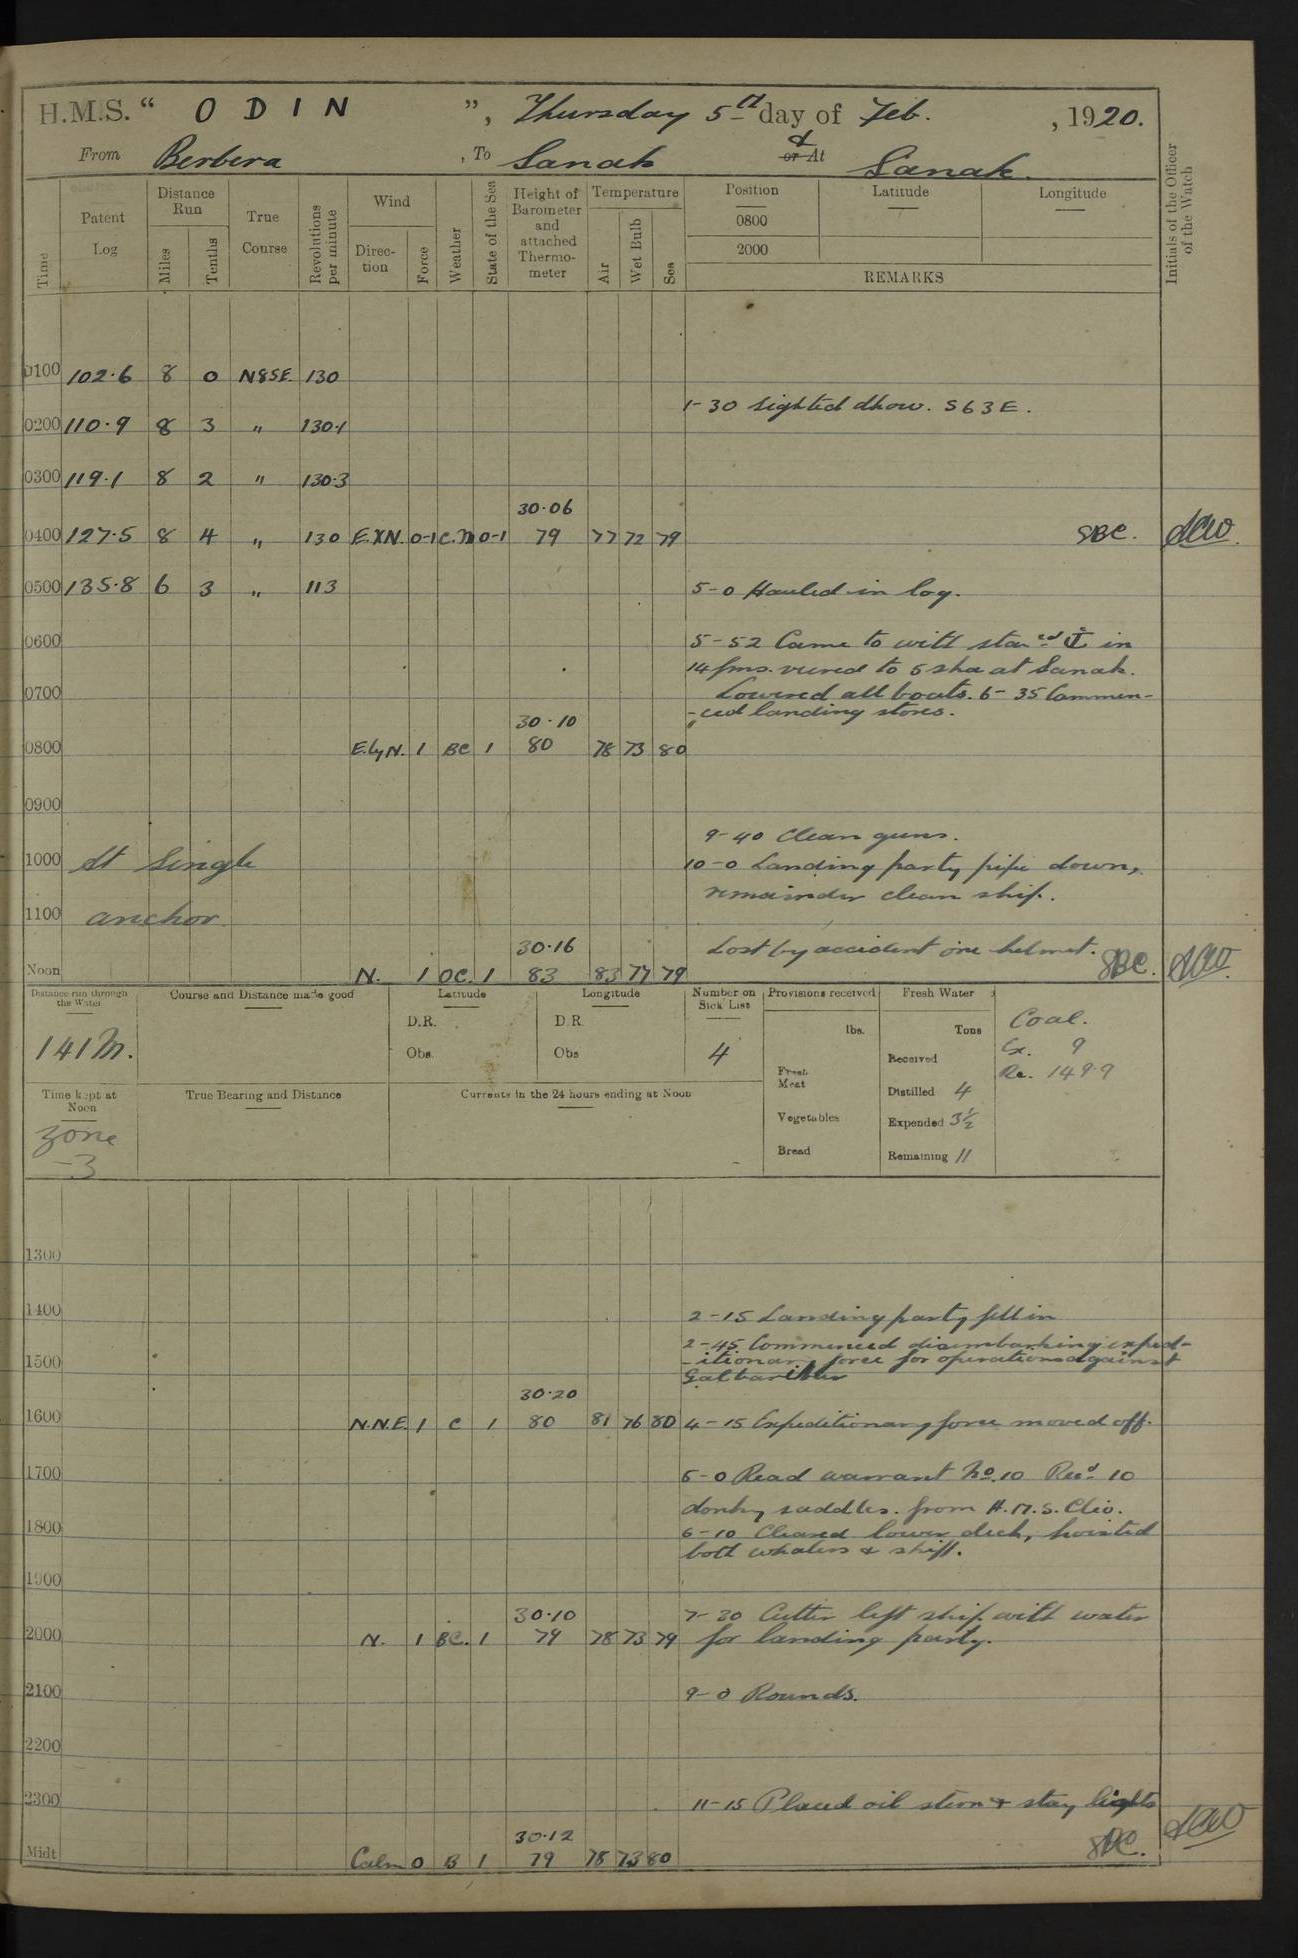 H.M.S. “ ODIN ”, Thursday 5th day of Feb. , 1920.
From Berbera , To Sanak or At & Sanak.
Time
Patent Log
Distance Run
Miles
Tenths
True Course
Revolutions per minute
Wind
Direction
Force
Weather
State of the Sea
Height of Barometer and attached Thermometer
Temperature
Air
Wet Bulb
Sea
Position Latitude Longitude
0800
2000
REMARKS
Initials of the Officer of the Watch
0100 102·6 8 0 N85E. 130
1-30 sighted dhow. S63E.
0200 110·9 8 3 " 130·1
0300 119·1 8 2 " 130·3
30·06
0400 127·5 8 4 " 130 E.XN. 0-1 C.M 0-1 79 77 72 79 SBC.
0500 135·8 6 3 " 113 5-0 Hauled in log.
0600 5-52 Came to with star'd ⚓ in
14 fms. veered to 5 shs at Sanak.
0700 Lowered all boats. 6-35 Commen-
-ced landing stores.
30·10
0800 E.by N. 1 BC 1 80 78 73 80
0900
9-40 Clean guns.
1000 At Single 10-0 Landing party pipe down,
remainder clean ship.
1100 anchor.
30·16 Lost by accident one helmet. SBC.
Noon N. 1 OC. 1 83 83 77 79
Distance run through the Water
141 M.
Course and Distance made good
Latitude
D.R.
Obs.
Longitude
D.R.
Obs
Number on Sick List
4
Provisions received
lbs.
Fresh Meat
Vegetables
Bread
Fresh Water
Tons
Received
Distilled 4
Expended 3½
Remaining 11
Coal.
Ex. 9
Re. 149·9
Time kept at Noon
Zone
-3
True Bearing and Distance
Currents in the 24 hours ending at Noon
1300
1400 2-15 Landing party fell in
2-45 Commenced disembarking exped-
1500 -itionary force for operations against
Galbaribur
30·20
1600 N.N.E. 1 C 1 80 81 76 80 4-15 Expeditionary force moved off.
1700 5-0 Read warrant No. 10 Rec'd 10
donkey saddles. from H.M.S. Clio.
1800 6-10 Cleared lower deck, hoisted
both whalers & skiff.
1900
30·10 7-30 Cutter left ship with water
2000 N. 1 BC. 1 79 78 73 79 for landing party.
2100 9-0 Rounds.
2200
2300 11-15 Placed oil stern & stay lights
30·12 SBC.
Midt Calm 0 B 1 79 78 73 80